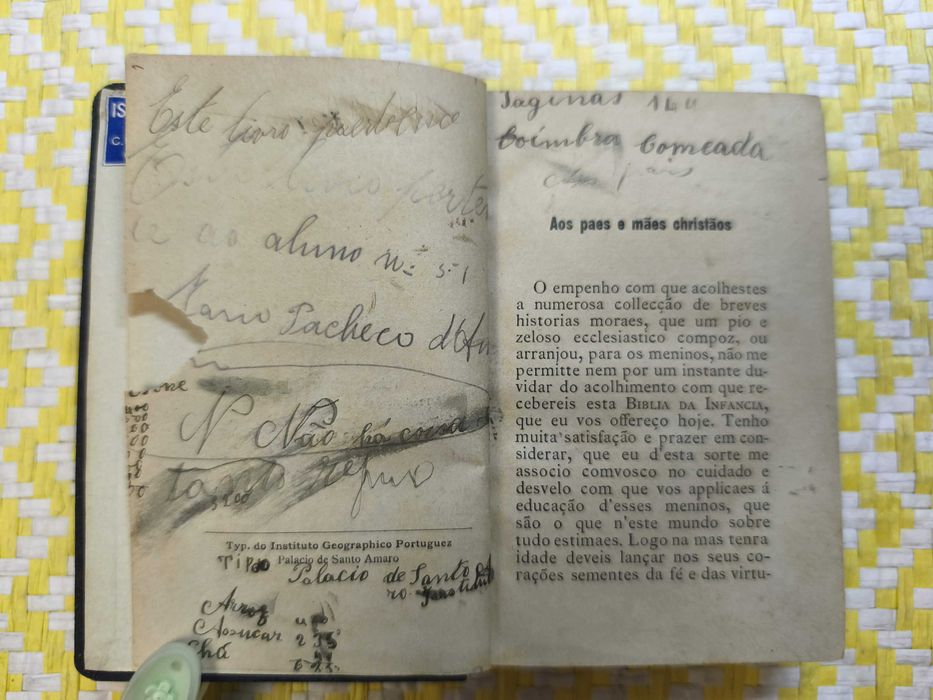 IS
C.
Este livro pertence
livro perten
ce ao aluno nº 51
Mario Pacheco d'
N Não há coisa
tanto
$200
Typ. do Instituto Geographico Portuguez
Palacio de Santo Amaro
Tipo
Palacio de Santo
ro
Arroz
Assucar
Chá
Paginas 144
Coimbra Comeada
Aos paes e mães christãos
O empenho com que acolhestes
a numerosa collecção de breves
historias moraes, que um pio e
zeloso ecclesiastico compoz, ou
arranjou, para os meninos, não me
permitte nem por um instante du-
vidar do acolhimento com que re-
cebereis esta BIBLIA DA INFANCIA,
que eu vos offereço hoje. Tenho
muita satisfação e prazer em con-
siderar, que eu d'esta sorte me
associo comvosco no cuidado e
desvelo com que vos applicaes á
educação d'esses meninos, que
são o que n'este mundo sobre
tudo estimaes. Logo na mas tenra
idade deveis lançar nos seus co-
rações sementes da fé e das virtu-